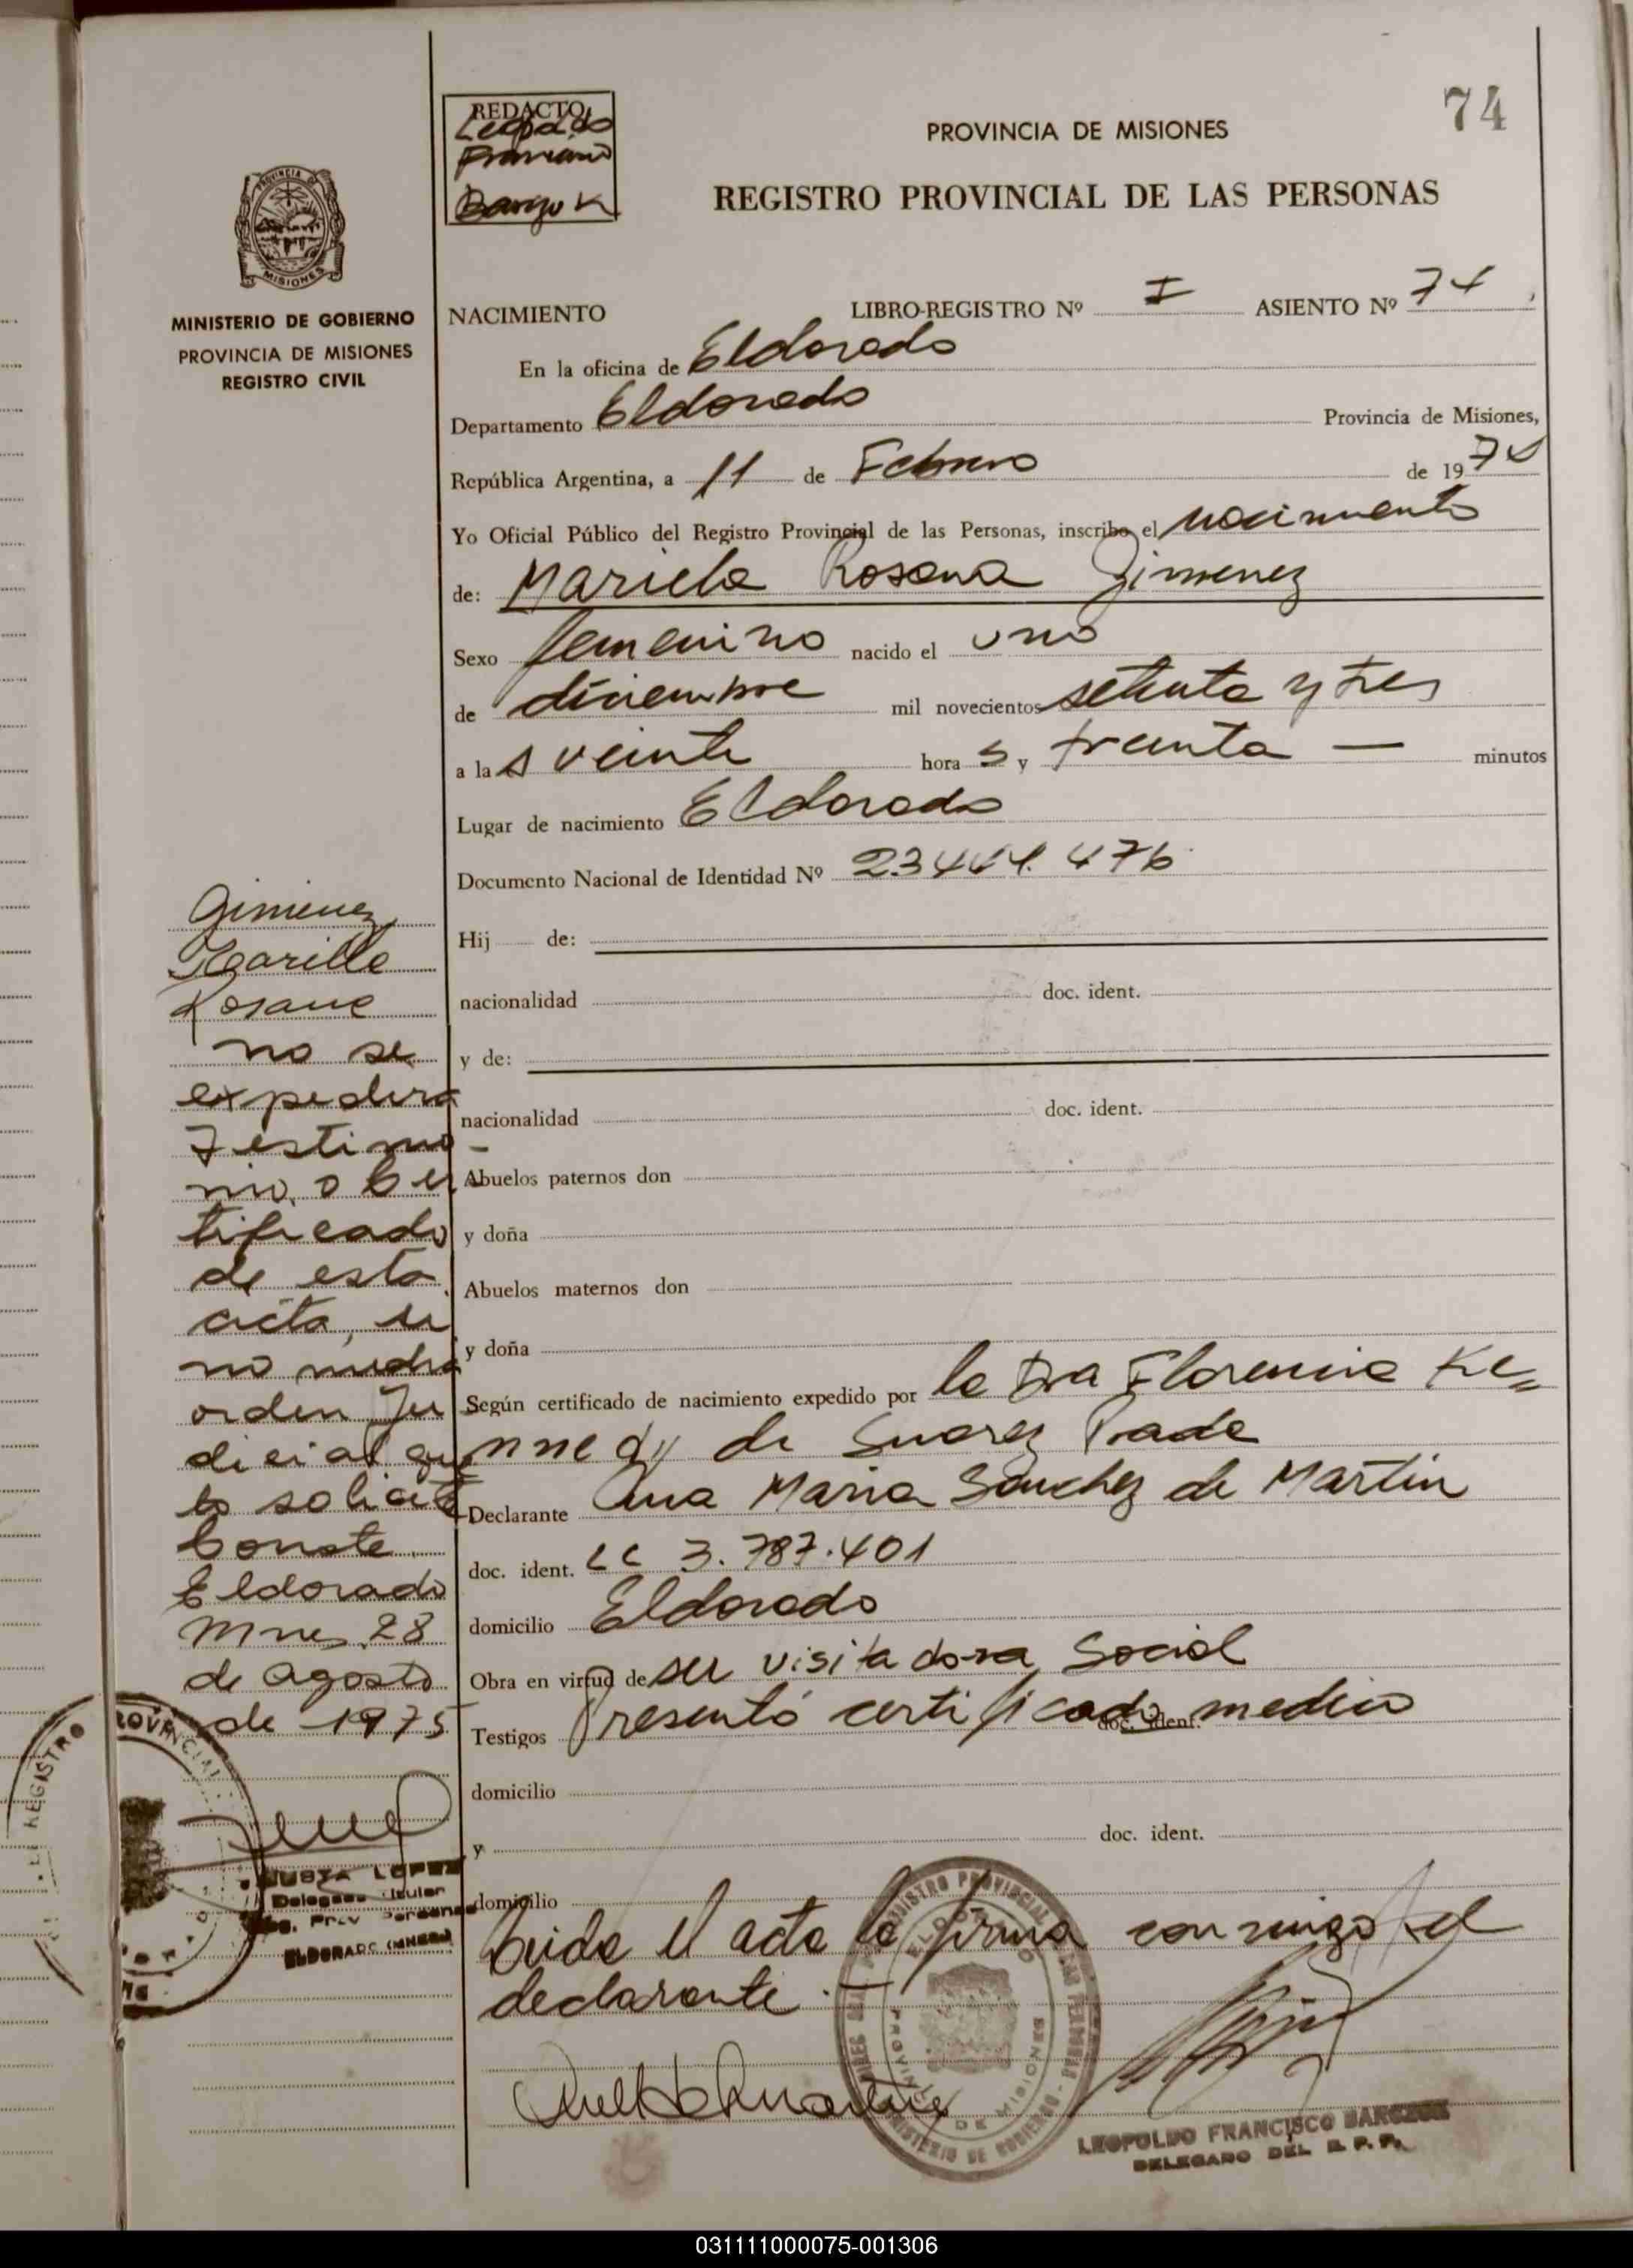 74
REDACTO
Leopoldo
PROVINCIA DE MISIONES
REGISTRO PROVINCIAL DE LAS PERSONAS
PROVINCIA DE
MISIONES
MINISTERIO DE GOBIERNO
PROVINCIA DE MISIONES
REGISTRO CIVIL
NACIMIENTO LIBRO-REGISTRO Nº I ASIENTO Nº 74
En la oficina de Eldorado
Departamento Eldorado Provincia de Misiones,
República Argentina, a 11 de Febrero de 1974
Yo Oficial Público del Registro Provincial de las Personas, inscribo el nacimiento
de: Mariela Rosana Gimenez
Sexo femenino nacido el uno
de diciembre mil novecientos setenta y tres
a las veinte horas y treinta — minutos
Lugar de nacimiento Eldorado
Documento Nacional de Identidad Nº 23444.476
Hij de:
nacionalidad doc. ident.
y de:
nacionalidad doc. ident.
Abuelos paternos don
y doña
Abuelos maternos don
y doña
Según certificado de nacimiento expedido por la Dra Florencia Ke=
nnedy de Suarez Prade
Declarante Ana Maria Sanchez de Martin
doc. ident. LC 3.787.401
domicilio Eldorado
Obra en virtud de ser visitadora Social
Testigos Presentó certificado medico doc. ident.
domicilio
y doc. ident.
domicilio
Leida el acta la firma conmigo el
declarante.—
Gimenez
Mariela
Rosana
no se
expedira
Testimo-
nio, o Cer
tificado
de esta
acta, si
no media
orden Ju
dicial que
lo solicite
Conste
Eldorado
Mnes 28
de Agosto
de 1975
JUSTA LOPEZ
Delegada Titular
Reg. Prov Personas
ELDORADO (MNES)
LEOPOLDO FRANCISCO BARCZUK
DELEGADO DEL R. P. P.
031111000075-001306